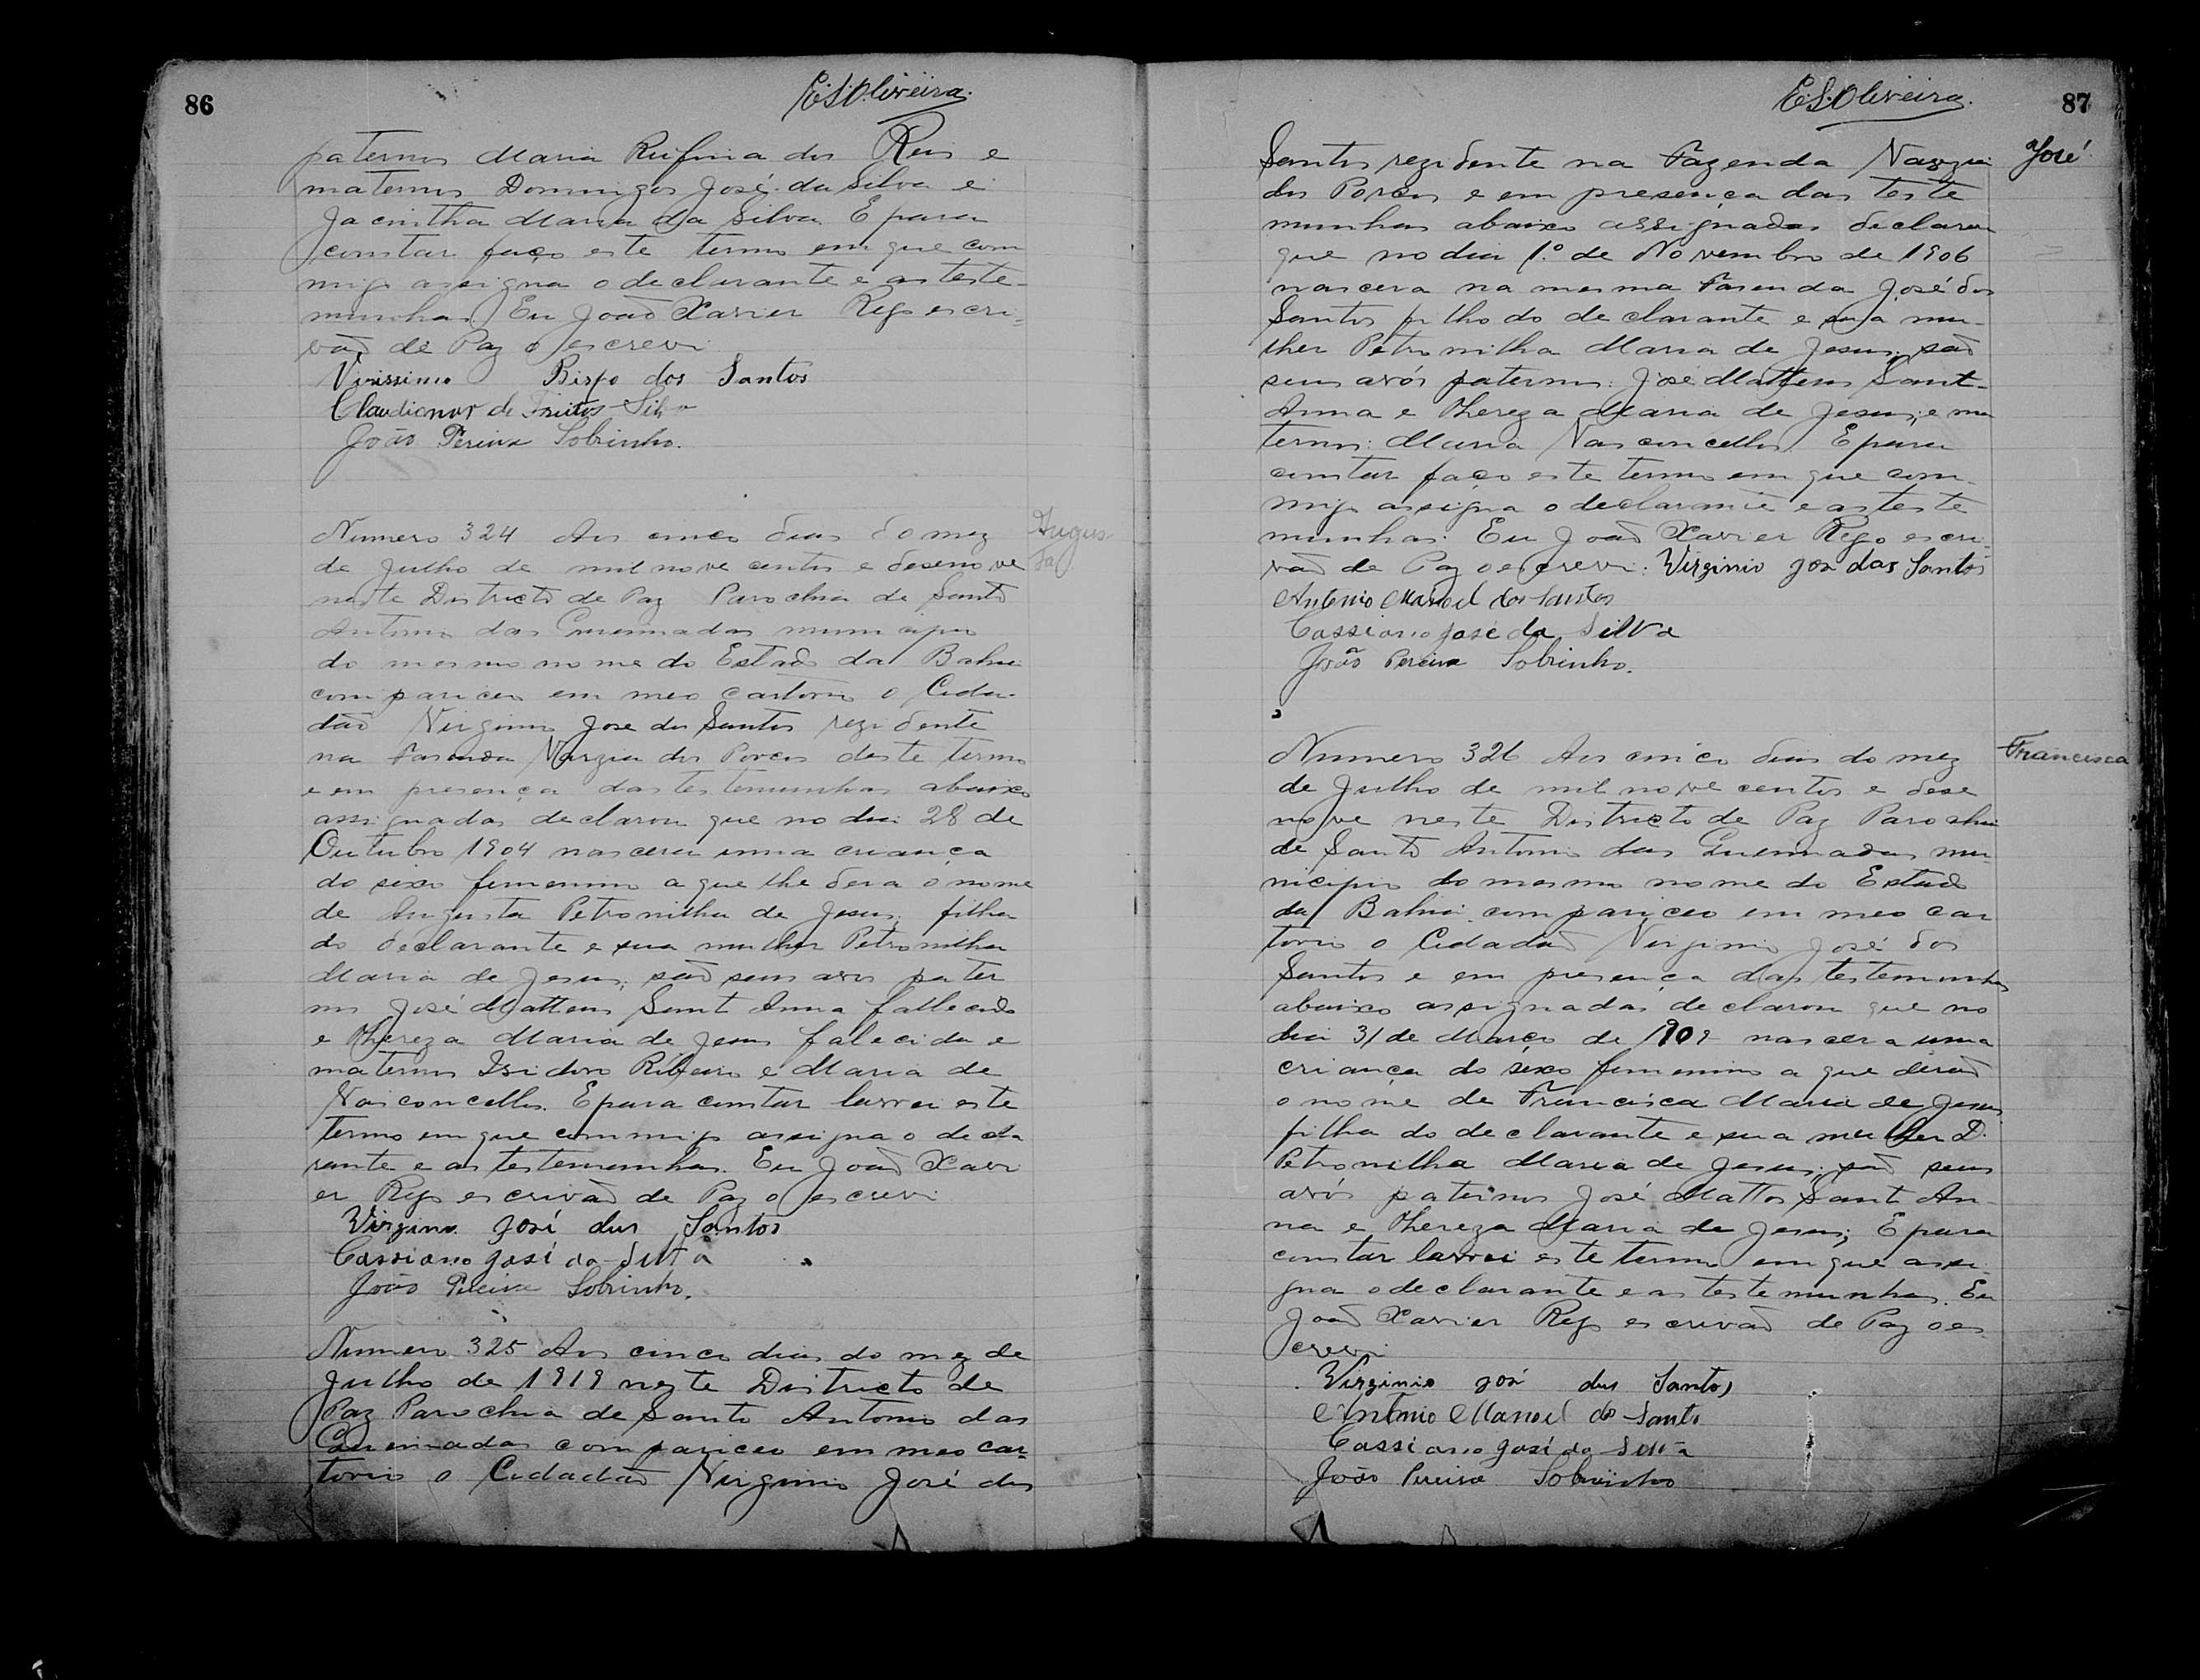 86
E.S.Oliveira.
paternos Maria Rufina dos Reis e
maternos Domingos José da Silva e
Jacintha Maria da Silva E para
constar faço este termo em que com
migo assigna o declarante e as teste-
munhas. Eu João Xavier Rego escri-
vão de Paz o escrevi
Virissimo Bispo dos Santos
Claudionor de Freitos Silva
João Pereira Sobrinho.
Numero 324 Aos cinco dias do mez
de Julho de mil nove centos e desenove
neste Districto de Paz Parochia de Santo
Antonio das Queimadas municipio
do mesmo nome do Estado da Bahia
compariceu em meo cartorio o Cida-
dão Virginio Jose dos Santos rezidente
na Fasenda Varzia dos Porcos deste termo
e em presença das testemunhas abaixo
assignadas declarou que no dia 28 de
Outubro 1904 nascera uma criança
do sexo femenino a que lhe dera o nome
de Augusta Petronilha de Jesus, filha
do declarante e sua mulher Petronilha
Maria de Jesus; são seus avos pater
nos José Matteus Sant Anna fallecido
e Thereza Maria de Jesus falecida e
maternos Isidoro Ribeiro e Maria de
Vasconcellos. E para constar lavrei este
termo em que commigo assigna o decla
rante e as testemunhas. Eu João Xavi
er Rego escrivão de Paz o escrevi
Virginio José dos Santos
Cassiano José da Silva
João Pereira Sobrinho.
Augus-
ta
Numero 325 Aos cinco dias do mez de
Julho de 1919 neste Districto de
Paz Parochia de Santo Antonio das
Queimadas compariceo em meo car-
torio o Cidadão Virginio José dos
E.S.Oliveira.
87
Santos rezidente na Fazenda Vargia
dos Porcos e em presença das teste
munhas abaixo assignadas declarou
que no dia 1.º de Novembro de 1906
nascera na mesma Fasenda José dos
Santos filho do declarante e sua mu-
lher Petronilha Maria de Jesus; são
seus avós paternos: José Matteus Sant-
Anna e Thereza Maria de Jesus, e ma
ternos: Maria Vasconcellos. E para
constar faço este termo em que com-
migo assigna o declarante e as teste
munhas. Eu João Xavier Rego escri-
vão de Paz o escrevi: Virginio José dos Santos
Antonio Manoel dos Santos
Cassiano José da Silva
João Pereira Sobrinho.
José
Numero 326 Aos cinco dias do mez
de Julho de mil nove centos e dese
nove neste Districto de Paz Parochia
de Santo Antonio das Queimadas mu
nicipio do mesmo nome do Estado
da Bahia compariceo em meo car
torio o Cidadão Virginio José dos
Santos e em presença das testemunhas
abaixo assignadas declarou que no
dia 31 de Março de 1909 nascera uma
criança do sexo femenino a que derão
o nome de Francisca Maria de Jesus
filha do declarante e sua mulher D.
Petronilha Maria de Jesus; são seus
avós paternos José Mattos Sant An-
na e Thereza Maria de Jesus; E para
constar lavrei este termo em que assi-
gna o declarante e as testemunhas. Eu
João Xavier Rego escrivão de Paz o es
crevi
Virginio José dos Santos
Antonio Manoel dos Santos
Cassiano José da Silva
João Pereira Sobrinho
Francisca